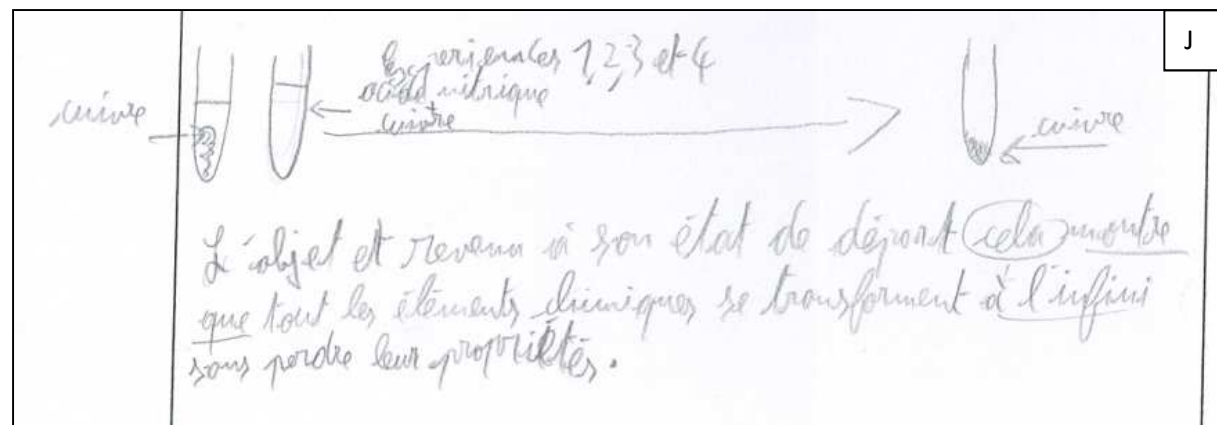 J
Experiences 1, 2, 3 et 4
acide nitrique
+
cuivre
cuivre
cuivre
L'objet et revenu à son état de départ cela montre
que tout les éléments chimiques se transforment à l'infini
sans perdre leur propriétés.